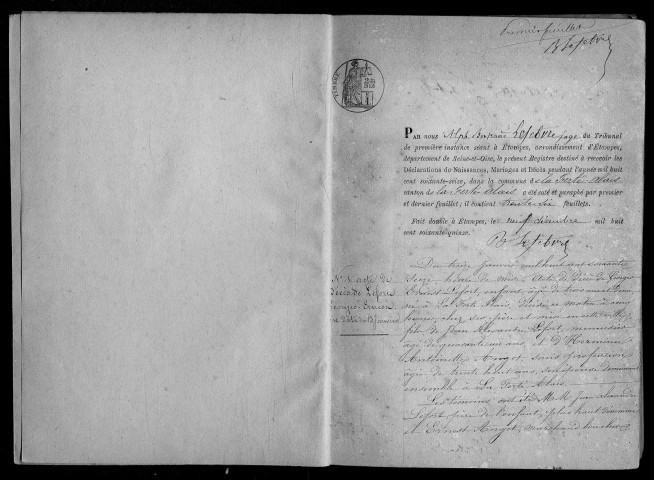 Premier feuillet
B Lefebvre
TIMBRE
PAR nous Alph. Bertrand Lefebvre juge du Tribunal
de première instance séant à Étampes, arrondissement d'Étampes,
département de Seine-et-Oise, le présent Registre destiné à recevoir les
Déclarations de Naissances, Mariages et Décès pendant l'année mil huit
cent soixante-seize, dans la commune de la Ferté Alais
canton de la Ferté Alais a été coté et paraphé par premier
et dernier feuillet; il contient trente six feuillets.
Fait double à Étampes, le neuf décembre mil huit
cent soixante-quinze.
B Lefebvre
Du treize janvier mil huit cent soixante
seize, heure de midi. Acte de Décès de Georges
Ernest Lefort, enfant, âgé de trois mois
né à La Ferté Alais, décédé ce matin à cinq
heures, chez ses père et mère en cette ville
fils de Jean Alexandre Lefort, menuisier
âgé de quarante un ans, et D'Hermine
Antoinette Angot, sans profession
âgée de trente huit ans, son épouse demeurant
ensemble à La Ferté Alais.
Les témoins ont été M.M. Jean Alexandre
Lefort père de l'enfant, plus haut dénommé
et Ernest Angot, marchand boucher
Décès de Lefort
Georges Ernest
en date du 13 janvier